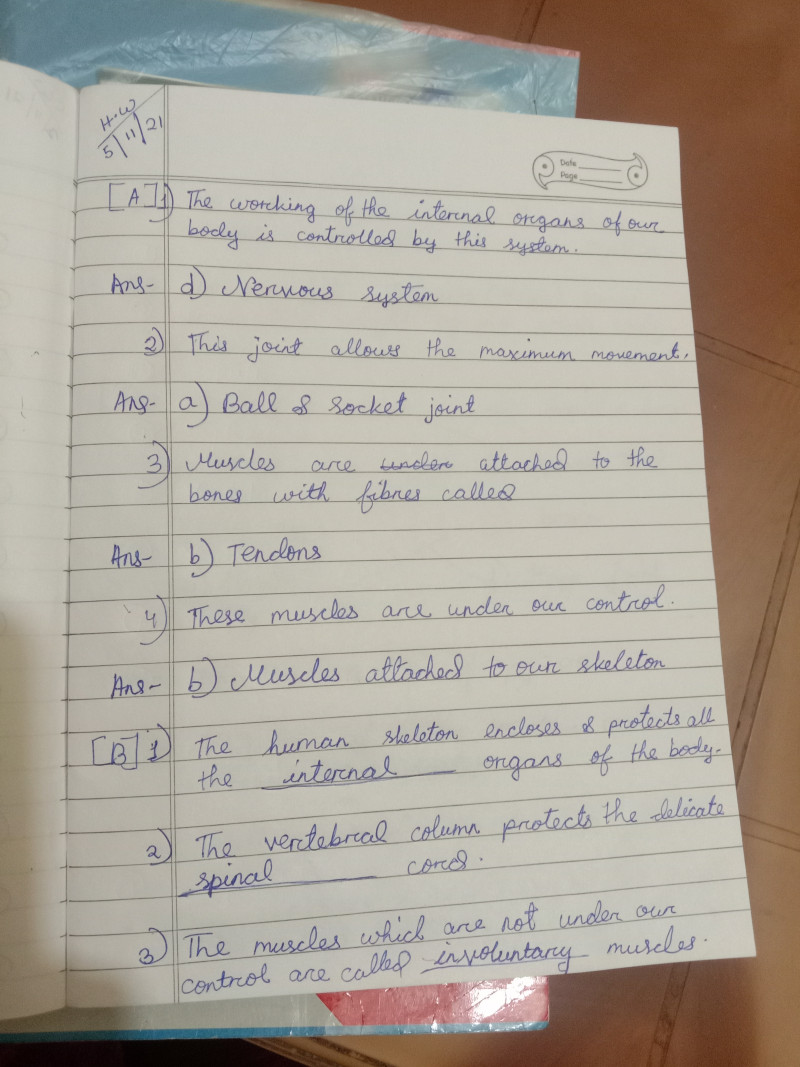 H.W
5/11/21
Date
Page
[A] 1) The working of the internal organs of our
body is controlled by this system.
Ans- d) Nervous system
2) This joint allows the maximum movement.
Ans- a) Ball & socket joint
3) Muscles are under attached to the
bones with fibres called
Ans- b) Tendons
4) These muscles are under our control.
Ans- b) Muscles attached to our skeleton
[B] 1) The human skeleton encloses & protects all
the internal organs of the body.
2) The vertebral column protects the delicate
spinal cord.
3) The muscles which are not under our
control are called involuntary muscles.